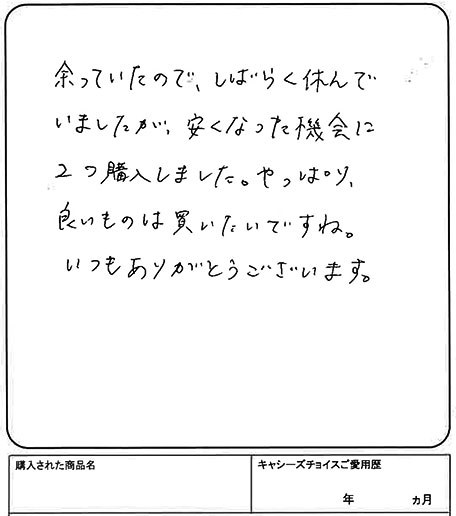 余っていたので、しばらく休んで
いましたが、安くなった機会に
2つ購入しました。やっぱり、
良いものは買いたいですね。
いつもありがとうございます。
購入された商品名
キャシーズチョイスご愛用歴
年　　ヵ月